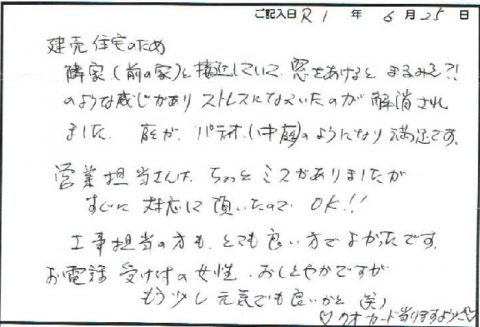 ご記入日 R1 年 6 月 25 日
建売住宅のため
隣家(前の家)と接近していて、窓をあけると まるみえ?!
のような感じがあり ストレスになっていたのが 解消され
ました。 庭が、パティオ(中庭)のようになり 満足です。
営業担当さんは、ちょっとミスがありましたが
すぐに 対応して 頂いたので OK!!
工事担当の方も、とても良い方でよかったです。
お電話 受付の女性、おしとやかですが
もう少し 元気でも良いかと (笑)
♡クオカード当りますように♡